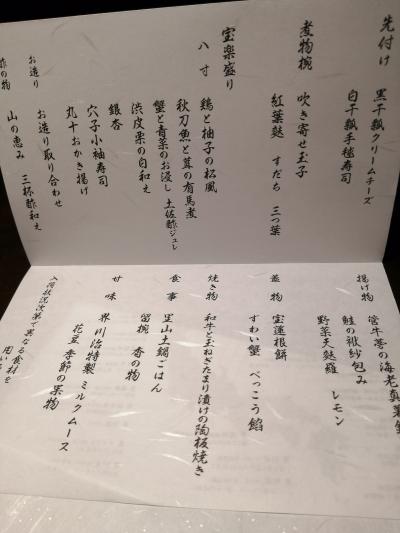 先付け
黒干瓢クリームチーズ
白干瓢手毬寿司
煮物椀 吹き寄せ玉子
紅葉麩 すだち 三つ葉
宝楽盛り
八寸 鶏と柚子の松風
秋刀魚と茸の有馬煮
蟹と青菜のお浸し 土佐酢ジュレ
渋皮栗の白和え
銀杏
穴子小袖寿司
丸十おかき揚げ
お造り お造り取り合わせ
酢の物 山の恵み 三杯酢和え
揚げ物 宮牛蒡の海老真薯
鮭の袱紗包み
野菜天麩羅 レモン
蓋物 宝蓮根餅
ずわい蟹 べっこう餡
焼き物 和牛と玉ねぎたまり漬けの陶板焼き
食事 里山土鍋ごはん
留椀 香の物
甘味 界 川治特製 ミルクムース
花豆 季節の果物
入荷状況次第で異なる食材を